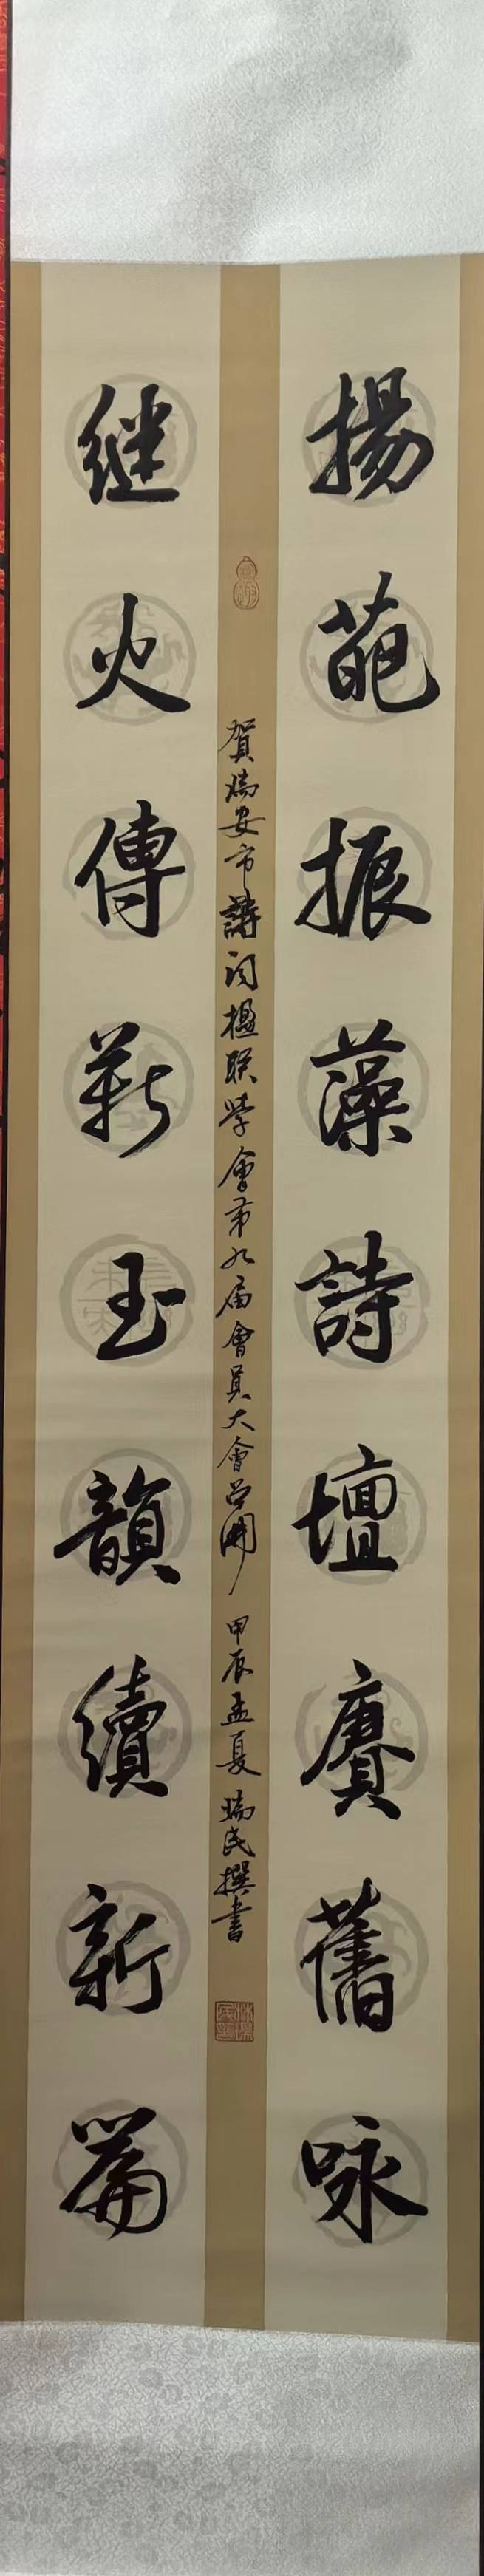 揚葩振藻詩壇賡舊咏
賀瑞安市詩詞楹联学會第九届會員大會召開
甲辰孟夏瑞民撰書
继火傳薪玉韻續新篇